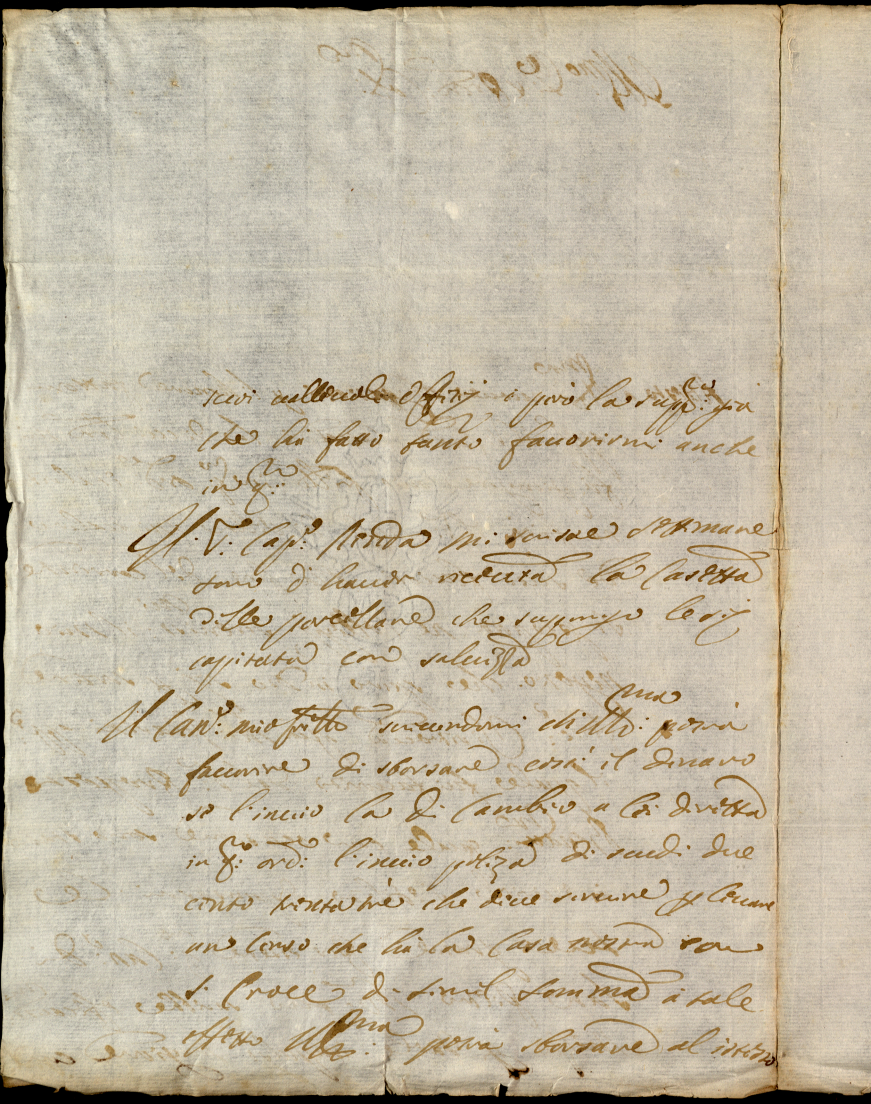 suoi validi offizij e però la supp.co già
che hà fatto tanto favorirmi anche
in q.to
Il S.r Cap.o mi scrisse settimane
sono d'haver ricevuta la Casetta
delle porcellane che suppongo le sij
capitata con salvezza
Il Can.co mio frello scrivendomi che V.S. Ill.ma potrà
favorire di sborsare costà il denaro
se l'invio la di Cambio a lei diretta
in q.to ord.o l'invio poliza di scudi due
cento trenta trè che dice servire p levare
un Censo che hà la Casa nostra con
S. Croce di simil somma à tale
effetto V.S. Ill.ma potrà sborsare al istesso